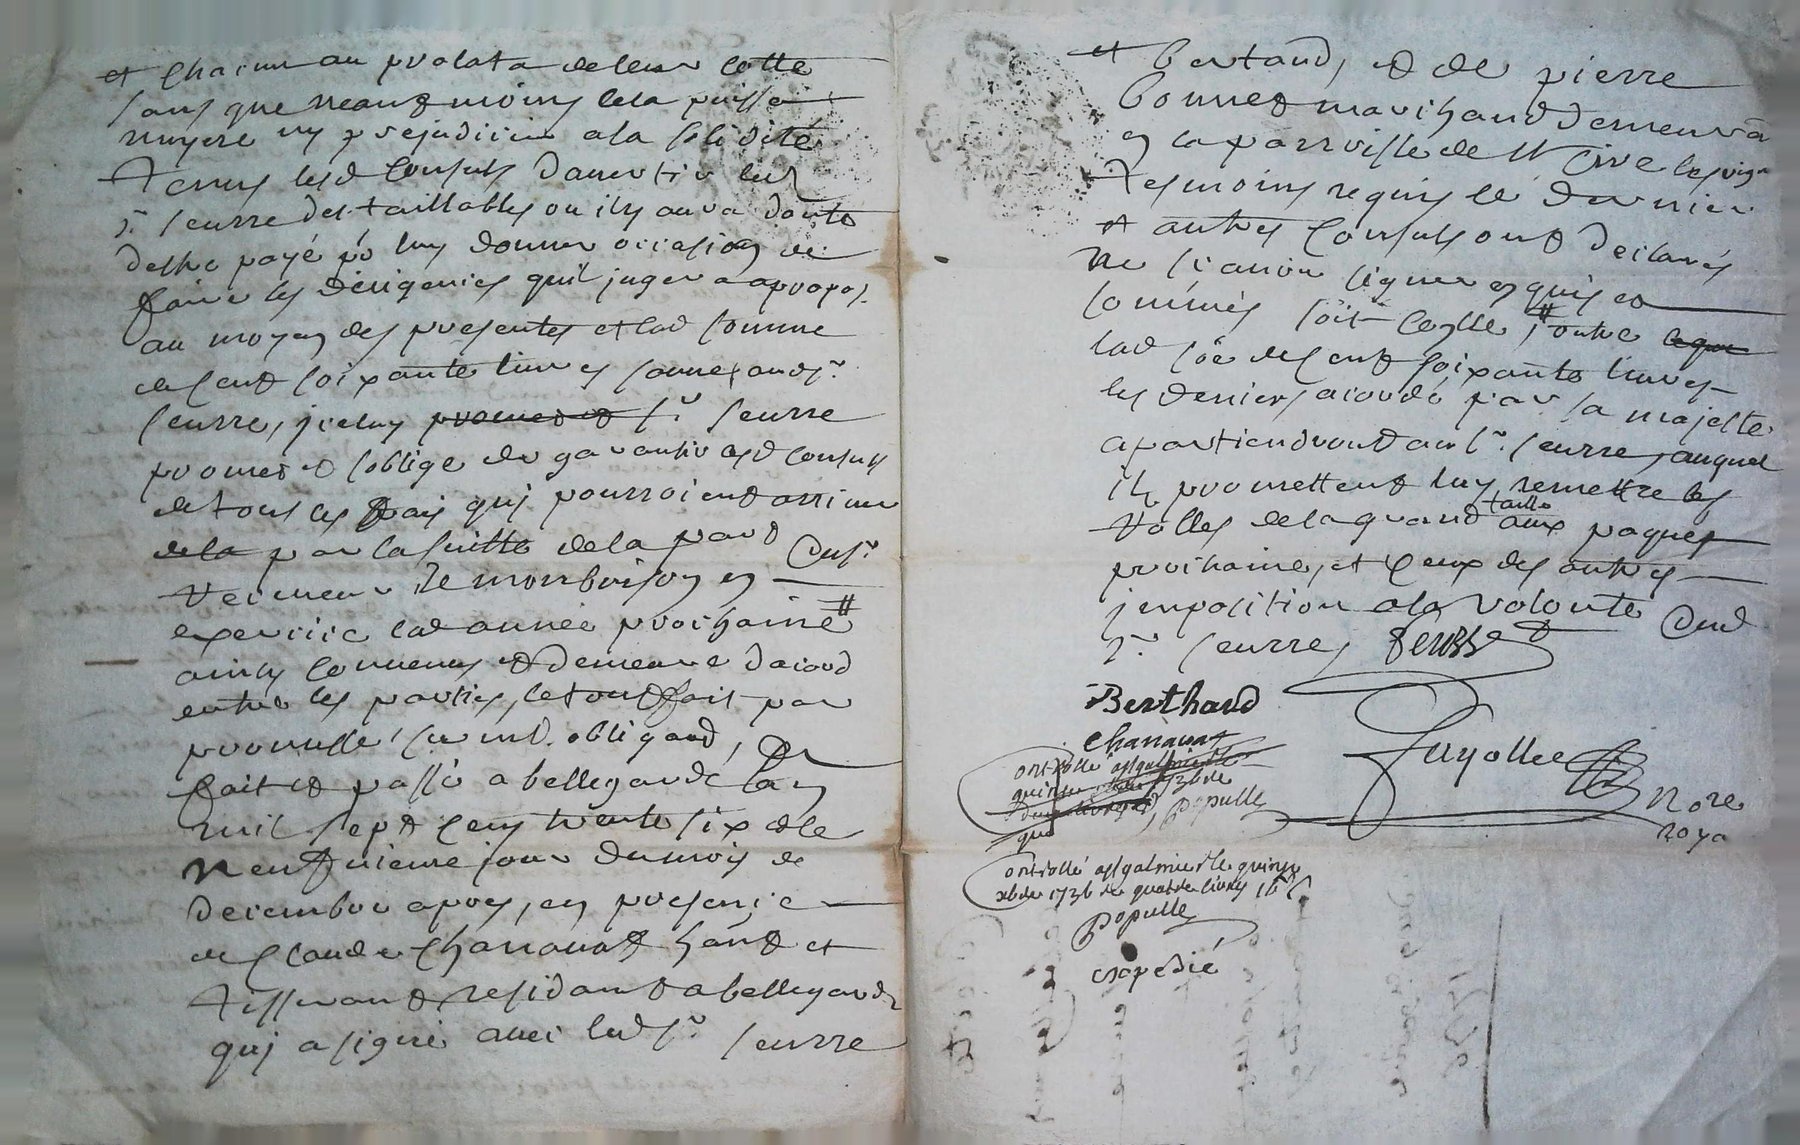 et chacun au prolata de leur cotte
sans que neantmoins cela puisse
nuyere ny prejudicier a la solidité
tenus lesd consuls d'avertir led
sr seurre des taillables ou il y aura doute
destre payé po luy donner occasion de
faire les diligences qu'il jugera apropos.
au moyen des presentes et lad somme
de cent soixante livres sonner audsr
seurre, iceluy promet et sr seurre
promet et soblige de garantir lesd consuls
de tous les frais qui pourroient arriver
de la par la suitte de la part dusr
receveur de montbrison en
exercice lad année prochaine #
ainsy convenus et demeure dacord
entre les parties, le tout fait par
promesse, sermt. obligaon,
fait et passé a bellegarde lan
mil sept cens trente six et le
neufvieme jour du mois de
decembre apres, en presence
de claude Chanavat hant et
tisserant residant a bellegarde
qui a signé avec ledsr seurre
et bertaud, et de pierre
bonnet marchand demeurant
en la parroisse de St Cire les vigne
tesmoins requis le dernier
et autres consuls ont declarés
ne scavoir signer enquis et
sommés soit scelle, # outre ce que
lad soe de cent soixante livres
les deniers acordé par sa majesté
apartiendront aud sr. seurre, auquel
ils promettent luy remettre les
rolles de la grand taille aux paques
prochaines, et ceux des autres
jmposition a la volonté dud
sr seurre, Seurre
Berthaud
Chanavat
Fayolle
Nore
roya
Controllé a st galmier le
quinze 1736 de
Populle
que
Controllé a st galmier le quinze
xbre 1736 Re quatre livres 16 s
Populle
expedié